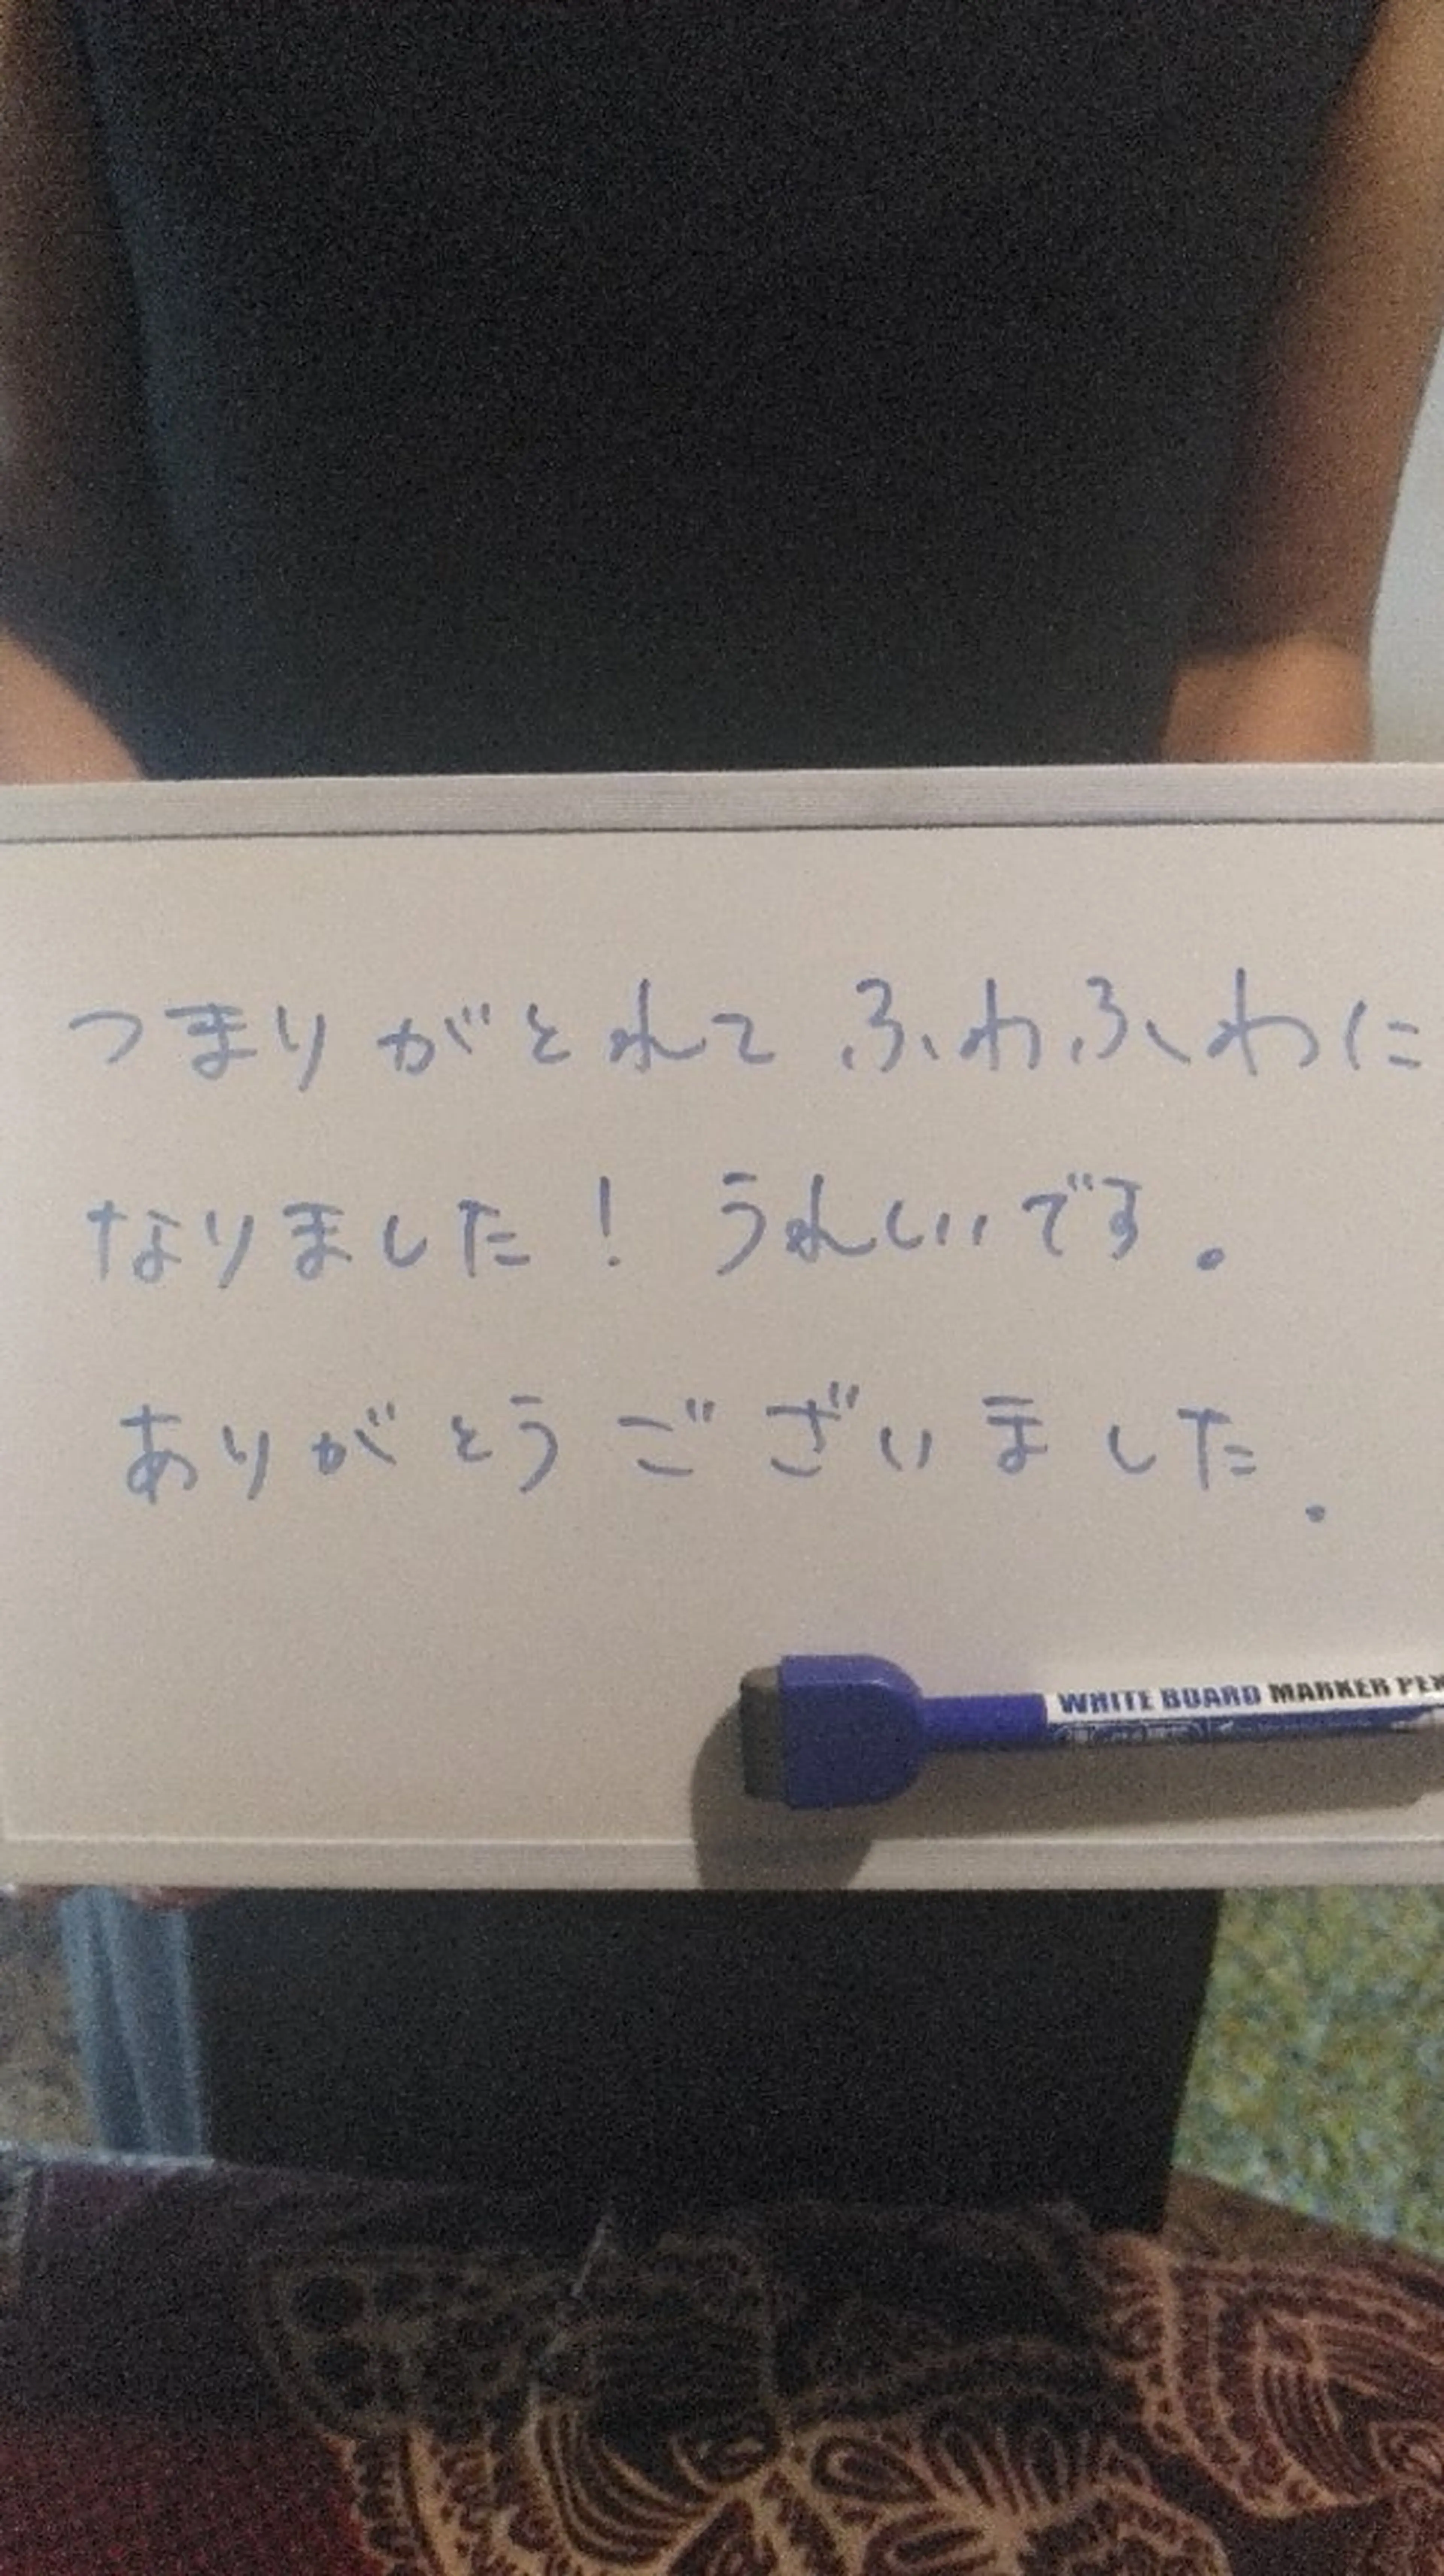 つまりがとれてふわふわに
なりました！ うれしいです。
ありがとうございました.
WHITE BOARD MARKER PEN